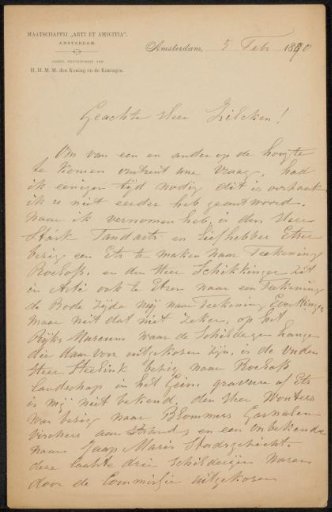 MAATSCHAPPIJ "ARTI ET AMICITIÆ".
AMSTERDAM.
H.H. M.M. den Koning en de Koningin.
Amsterdam, 5 Febr 1890
Geachte Heer Zilcken!
Om van een en ander op de hoogte
te komen omtrent uw vraag, had
ik eenigen tijd noodig dit is oorzaak
ik u niet eerder heb geantwoord.
Naar ik vernomen heb, is den Heer
Tandarts en liefhebber Etser
bezig een Ets te maken naar Teekening
Roelofs, en den Heer zit
in Arti ook te Etsen naar een Teekening
de Bode, naar Teekening
maar niet dat niet zeker, op het
Rijks Museum waar de Schilderijen hangen
die daarvoor uitgekozen zijn, is de
Heer bezig naar Roelofs
landschap in het Gein gravure of Ets
is mij niet bekend, den Heer Wouters
was bezig naar Blommers Garnalen
Visschers aan Strand, en een onbekende
naar Jaap Maris Stadsgezicht
deze laatste drie Schilderijen waren
door de Commissie uitgekozen